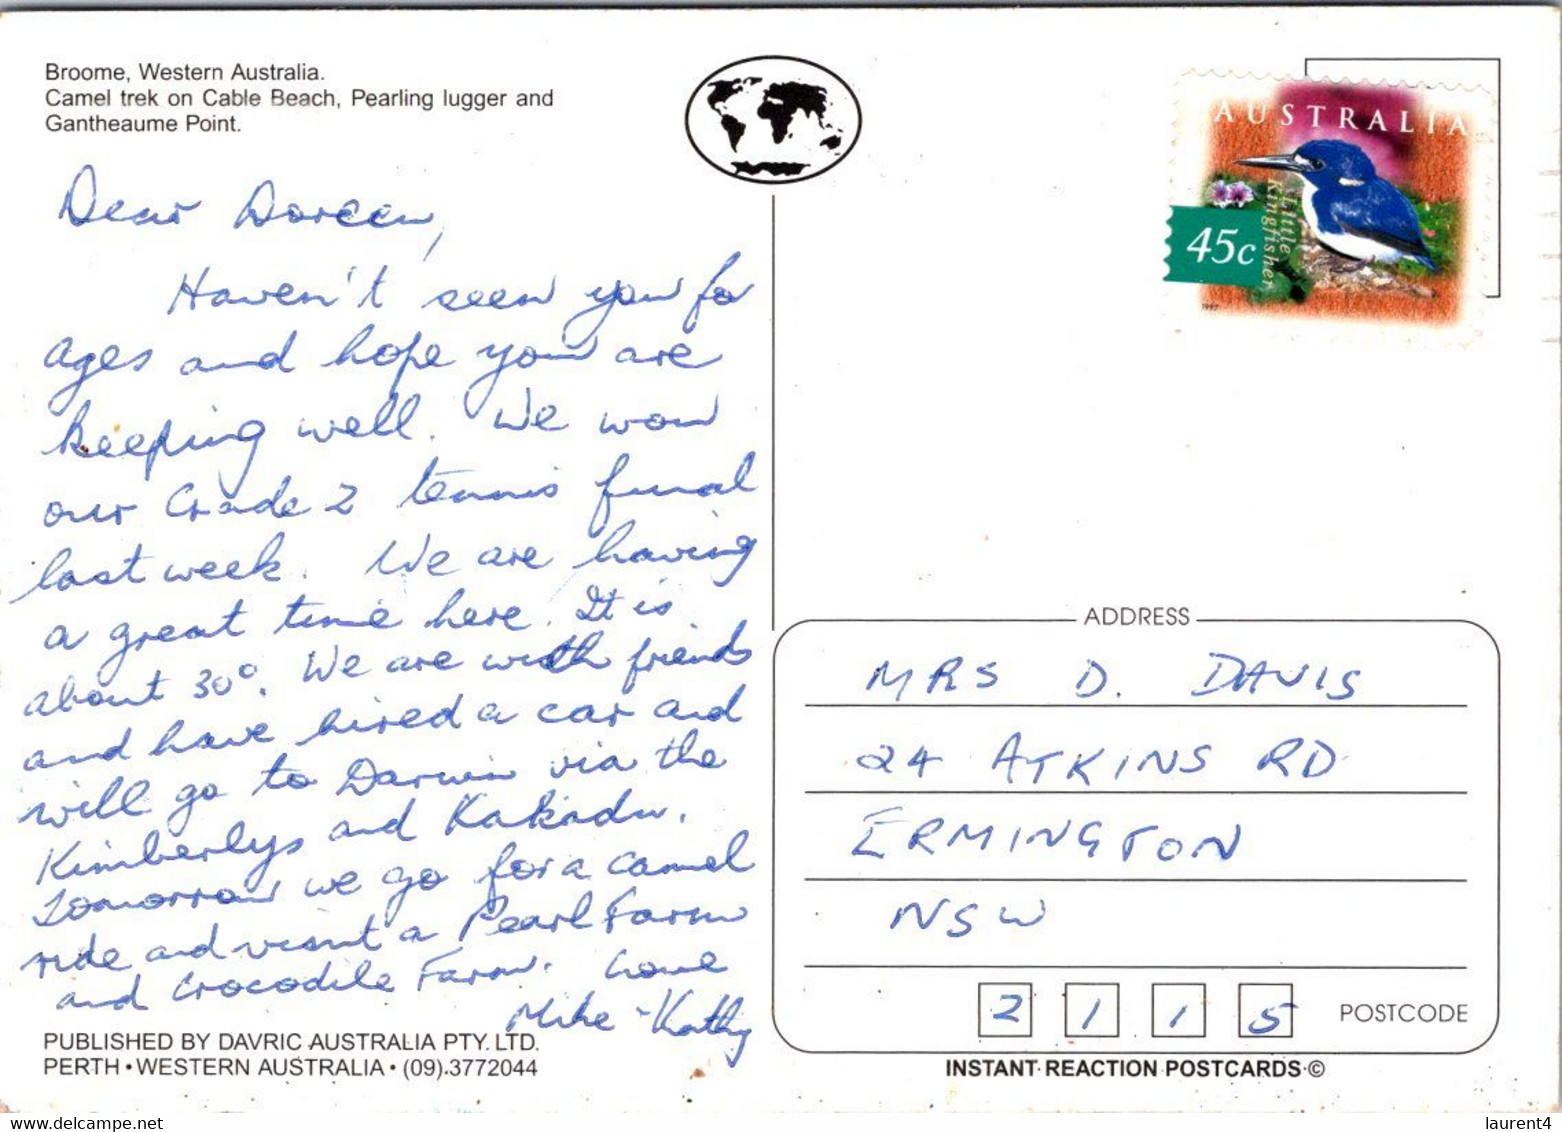 Broome, Western Australia.
Camel trek on Cable Beach, Pearling lugger and
Gantheaume Point.
Dear Doreen,
Haven't seen you for
ages and hope you are
keeping well. We won
our Grade 2 tennis final
last week. We are having
a great time here. It is
about 30°. We are with friends
and have hired a car and
will go to Darwin via the
Kimberlys and Kakadu.
Tomorrow we go for a camel
ride and visit a Pearl Farm
and Crocodile Farm. Love
Mike - Kathy
PUBLISHED BY DAVRIC AUSTRALIA PTY. LTD.
PERTH • WESTERN AUSTRALIA • (09) 3772044
AUSTRALIA
45c
Little
Kingfisher
1997
ADDRESS
MRS D. DAVIS
24 ATKINS RD
ERMINGTON
NSW
2 1 1 5 POSTCODE
INSTANT REACTION POSTCARDS ©
www.delcampe.net
laurent4